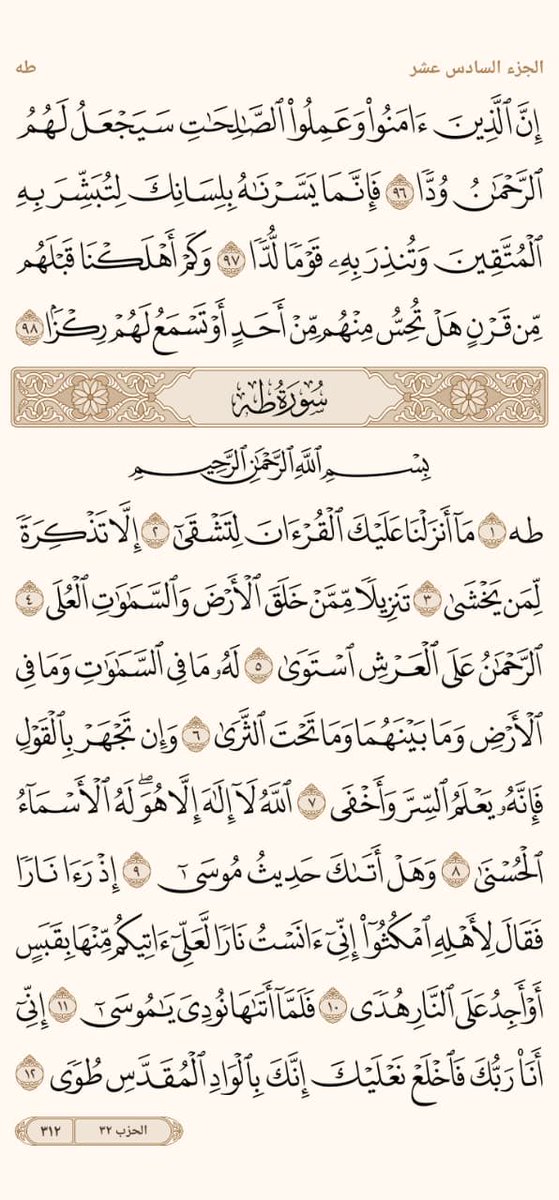 الجزء السادس عشر
طه
إِنَّ ٱلَّذِينَ ءَامَنُوا۟ وَعَمِلُوا۟ ٱلصَّـٰلِحَـٰتِ سَيَجْعَلُ لَهُمُ
ٱلرَّحْمَـٰنُ وُدًّا ٩٦ فَإِنَّمَا يَسَّرْنَـٰهُ بِلِسَانِكَ لِتُبَشِّرَ بِهِ
ٱلْمُتَّقِينَ وَتُنذِرَ بِهِۦ قَوْمًا لُّدًّا ٩٧ وَكَمْ أَهْلَكْنَا قَبْلَهُم
مِّن قَرْنٍ هَلْ تُحِسُّ مِنْهُم مِّنْ أَحَدٍ أَوْ تَسْمَعُ لَهُمْ رِكْزًۢا ٩٨
سُورَةُ طه
بِسْمِ ٱللَّهِ ٱلرَّحْمَـٰنِ ٱلرَّحِيمِ
طه ١ مَآ أَنزَلْنَا عَلَيْكَ ٱلْقُرْءَانَ لِتَشْقَىٰٓ ٢ إِلَّا تَذْكِرَةً
لِّمَن يَخْشَىٰ ٣ تَنزِيلًا مِّمَّنْ خَلَقَ ٱلْأَرْضَ وَٱلسَّمَـٰوَٰتِ ٱلْعُلَى ٤
ٱلرَّحْمَـٰنُ عَلَى ٱلْعَرْشِ ٱسْتَوَىٰ ٥ لَهُۥ مَا فِى ٱلسَّمَـٰوَٰتِ وَمَا فِى
ٱلْأَرْضِ وَمَا بَيْنَهُمَا وَمَا تَحْتَ ٱلثَّرَىٰ ٦ وَإِن تَجْهَرْ بِٱلْقَوْلِ
فَإِنَّهُۥ يَعْلَمُ ٱلسِّرَّ وَأَخْفَى ٧ ٱللَّهُ لَآ إِلَـٰهَ إِلَّا هُوَ ۖ لَهُ ٱلْأَسْمَآءُ
ٱلْحُسْنَىٰ ٨ وَهَلْ أَتَىٰكَ حَدِيثُ مُوسَىٰٓ ٩ إِذْ رَءَا نَارًا
فَقَالَ لِأَهْلِهِ ٱمْكُثُوٓا۟ إِنِّىٓ ءَانَسْتُ نَارًا لَّعَلِّىٓ ءَاتِيكُم مِّنْهَا بِقَبَسٍ
أَوْ أَجِدُ عَلَى ٱلنَّارِ هُدًى ١٠ فَلَمَّآ أَتَىٰهَا نُودِىَ يَـٰمُوسَىٰٓ ١١ إِنِّىٓ
أَنَا۠ رَبُّكَ فَٱخْلَعْ نَعْلَيْكَ إِنَّكَ بِٱلْوَادِ ٱلْمُقَدَّسِ طُوًى ١٢
الحزب ٣٢
٣١٢